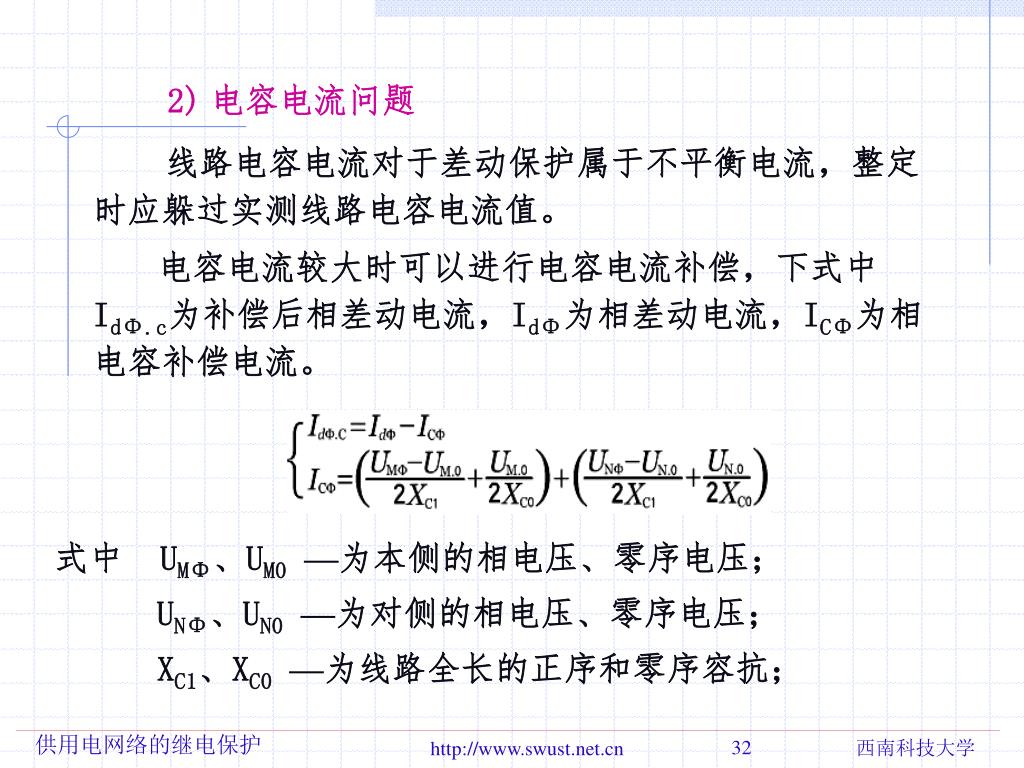 2) 电容电流问题
线路电容电流对于差动保护属于不平衡电流，整定
时应躲过实测线路电容电流值。
电容电流较大时可以进行电容电流补偿，下式中
I_{dΦ.c}为补偿后相差动电流，I_{dΦ}为相差动电流，I_{CΦ}为相
电容补偿电流。
I_{dΦ.C}=I_{dΦ}-I_{CΦ}
I_{CΦ}=((U_{MΦ}-U_{M.0})/(2X_{C1})+U_{M.0}/(2X_{C0}))+((U_{NΦ}-U_{N.0})/(2X_{C1})+U_{N.0}/(2X_{C0}))
式中 U_{MΦ}、U_{M0} —为本侧的相电压、零序电压；
U_{NΦ}、U_{N0} —为对侧的相电压、零序电压；
X_{C1}、X_{C0} —为线路全长的正序和零序容抗；
供用电网络的继电保护 http://www.swust.net.cn 32 西南科技大学